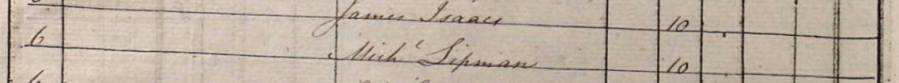 James Isaacs 10
6 Mich^l Lipman 10